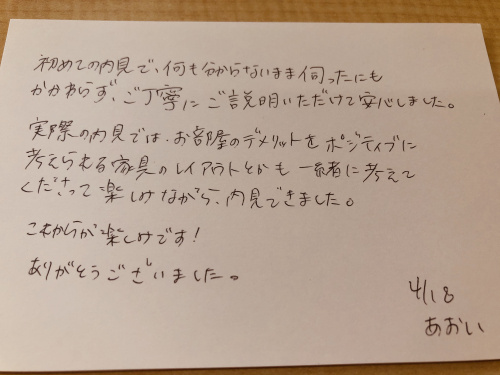 初めての内見で、何も分からないまま伺ったにも
かかわらず、ご丁寧にご説明いただけて安心しました。
実際の内見では、お部屋のデメリットをポジティブに
考えられる家具のレイアウトとかも一緒に考えて
くださって楽しみながら、内見できました。
これからが楽しみです！
ありがとうございました。
4/18
あおい